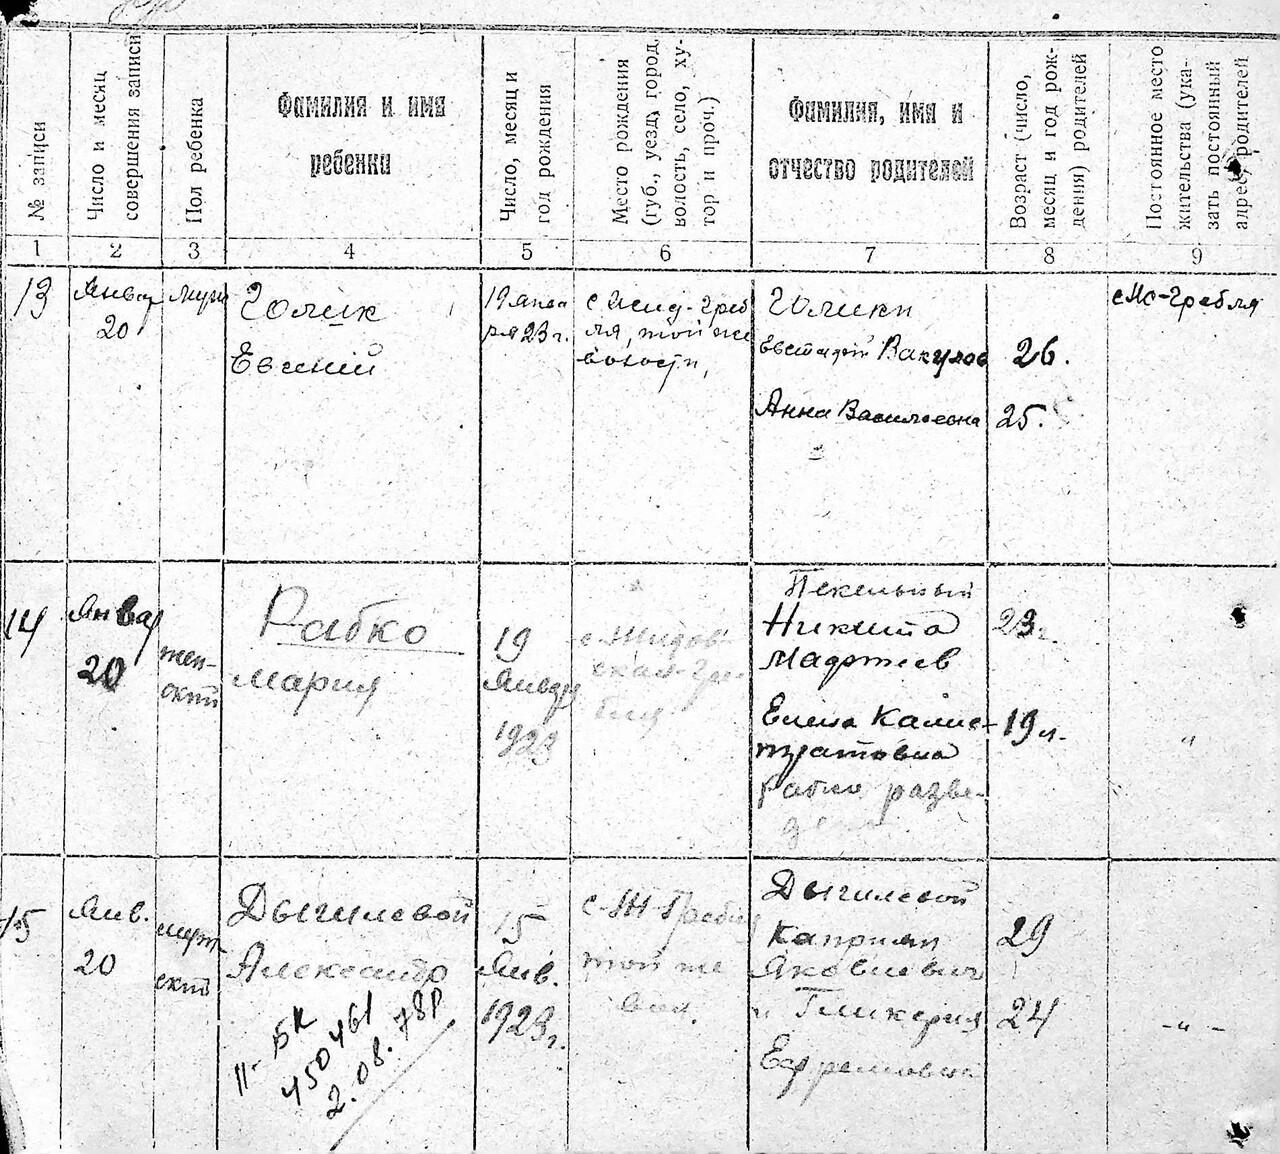 № записи
Число и месяц
совершения записи
Пол ребенка
Фамилия и имя
ребенка
Число, месяц и
год рождения
Место рождения
(губ., уезд, город,
волость, село, ху-
тор и проч.)
Фамилия, имя и
отчество родителей
Возраст (число,
месяц и год рож-
дения) родителей
Постоянное место
жительства (ука-
зать постоянный
адрес) родителей
1 2 3 4 5 6 7 8 9
13
Январ
20
муж
Голик
Евгений
19 янва
ря 23 г.
с Жид-Греб
ля, той же
волости,
Голики
Евстафий Вакулов
26.
Анна Васильевна
25.
с Жо-Гребля
14
Январ
20
жен-
ский
Рабко
Мария
19
Январ
1923
с. Жидов-
ская-Гре-
бля
Пекельный
Никита
Мадотиев
23 г.
Елена Калис-
тратовна
19 л.
Рабко разве-
дены
"
15
Янв.
20
муж-
ский
Дыгилевой
Александр
II-БК
450461
2.08.78р
15
Янв.
1923 г.
с-Ж-Гребля
той же
вол.
Дыгилевой
Каприян
Яковлевич
29
и Гликерия
24
Ефремовна
- " -